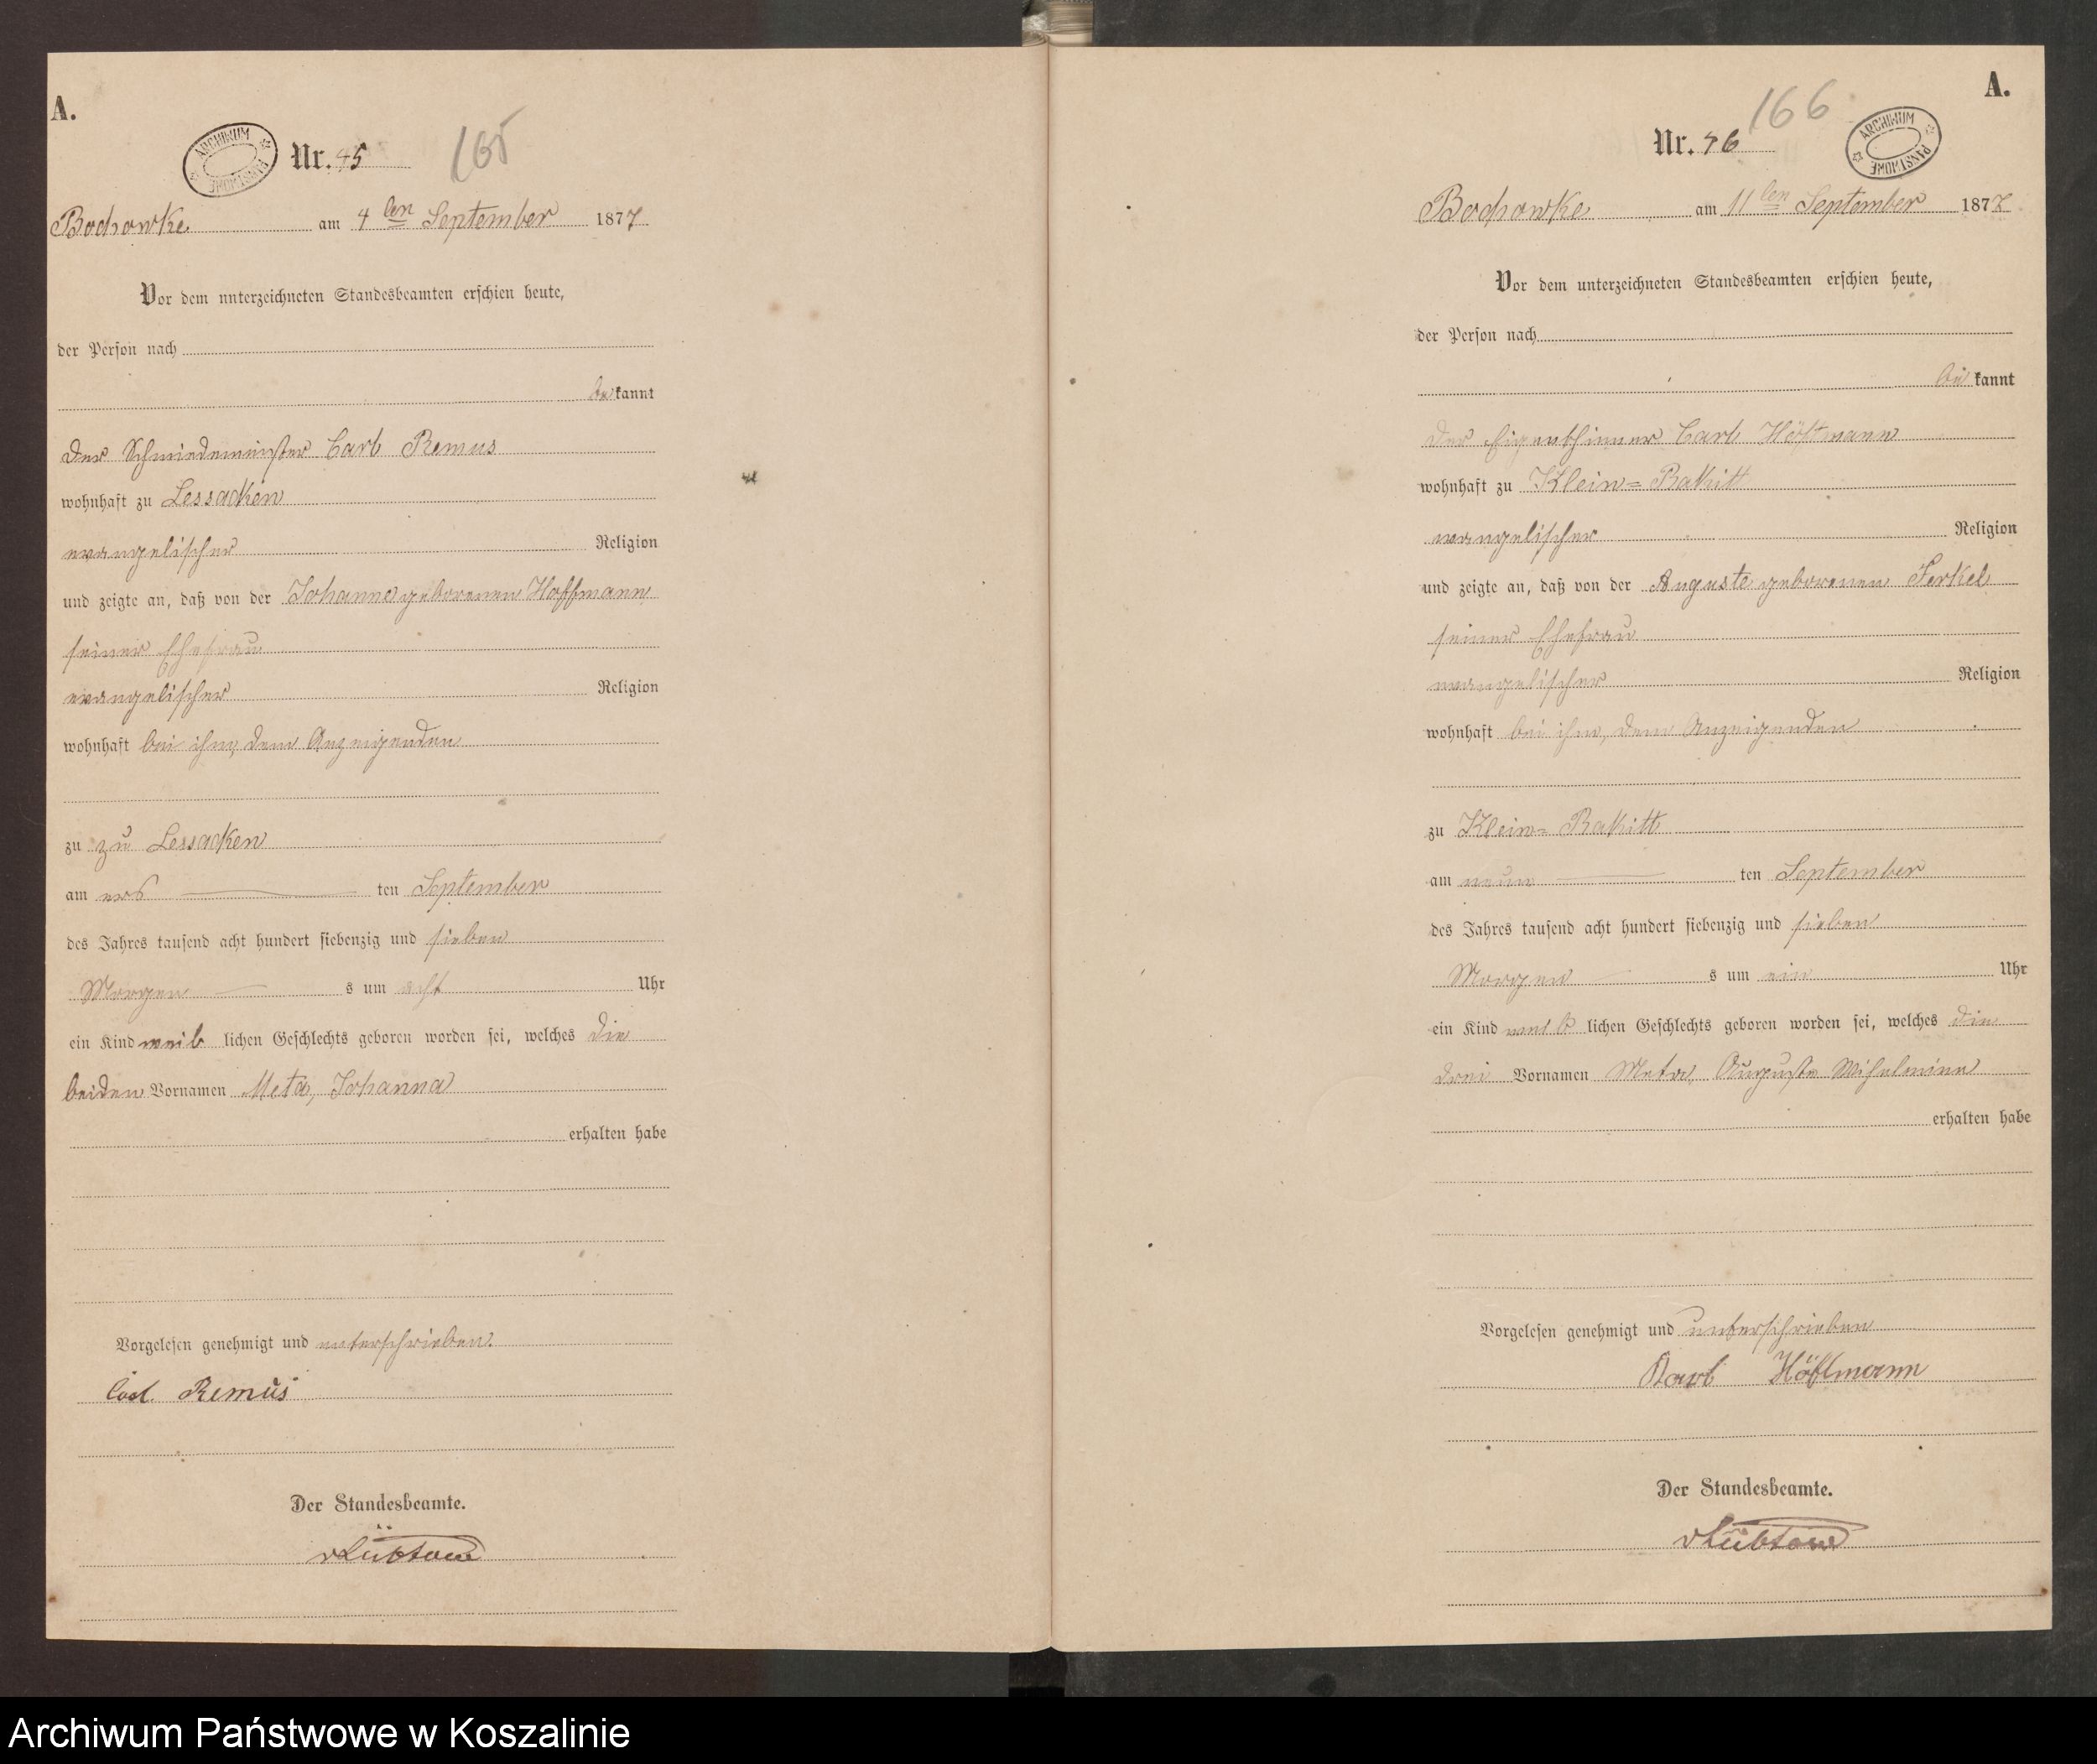 A.
ARCHIWUM PAŃSTWOWE
Nr. 45
165
Bochowke am 4ten September 1877
Vor dem unterzeichneten Standesbeamten erschien heute,
der Person nach
bekannt
der Schmiedemeister Carl Remus
wohnhaft zu Lessacken
evangelischer Religion
und zeigte an, daß von der Johanna geborenen Hoffmann
seiner Ehefrau
evangelischer Religion
wohnhaft bei ihm, dem Anzeigenden
zu zu Lessacken
am ers ten September
des Jahres tausend acht hundert siebenzig und sieben
Morgen s um acht Uhr
ein Kind weib lichen Geschlechts geboren worden sei, welches die
beiden Vornamen Meta, Johanna
erhalten habe
Vorgelesen genehmigt und unterschrieben.
Carl Remus
Der Standesbeamte.
vLübtow
A.
166
Nr. 46
ARCHIWUM PAŃSTWOWE
Bochowke am 11ten September 1877
Vor dem unterzeichneten Standesbeamten erschien heute,
der Person nach
bekannt
der Eigenthümer Carl Höftmann
wohnhaft zu Klein=Rakitt
evangelischer Religion
und zeigte an, daß von der Auguste geborenen Ferkel
seiner Ehefrau
evangelischer Religion
wohnhaft bei ihm, dem Anzeigenden
zu Klein=Rakitt
am neun ten September
des Jahres tausend acht hundert siebenzig und sieben
Morgen s um ein Uhr
ein Kind weib lichen Geschlechts geboren worden sei, welches die
drei Vornamen Meta, Auguste Wilhelmine
erhalten habe
Vorgelesen genehmigt und unterschrieben
Karl Höftmann
Der Standesbeamte.
vLübtow
Archiwum Państwowe w Koszalinie